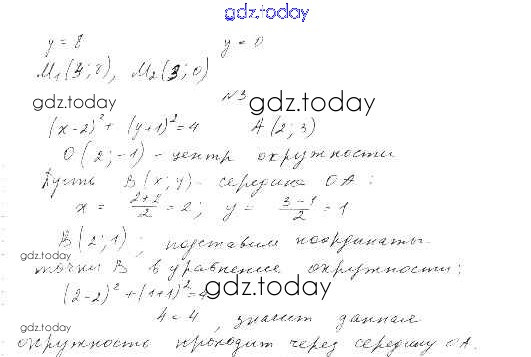 gdz.today
y = 8 y = 0
M₁(3; 8), M₂(3; 0)
gdz.today
N3
gdz.today
(x-2)² + (y+1)² = 4 A(2; 3)
O(2; -1) - центр окружности
Пусть B(x; y) - середина OA:
x = (2+2)/2 = 2; y = (3-1)/2 = 1
B(2; 1); подставим координаты
gdz.today
точки B в уравнение окружности:
(2-2)² + (1+1)² = 4
gdz.today
4 = 4, значит данная
gdz.today
окружность проходит через середину OA.